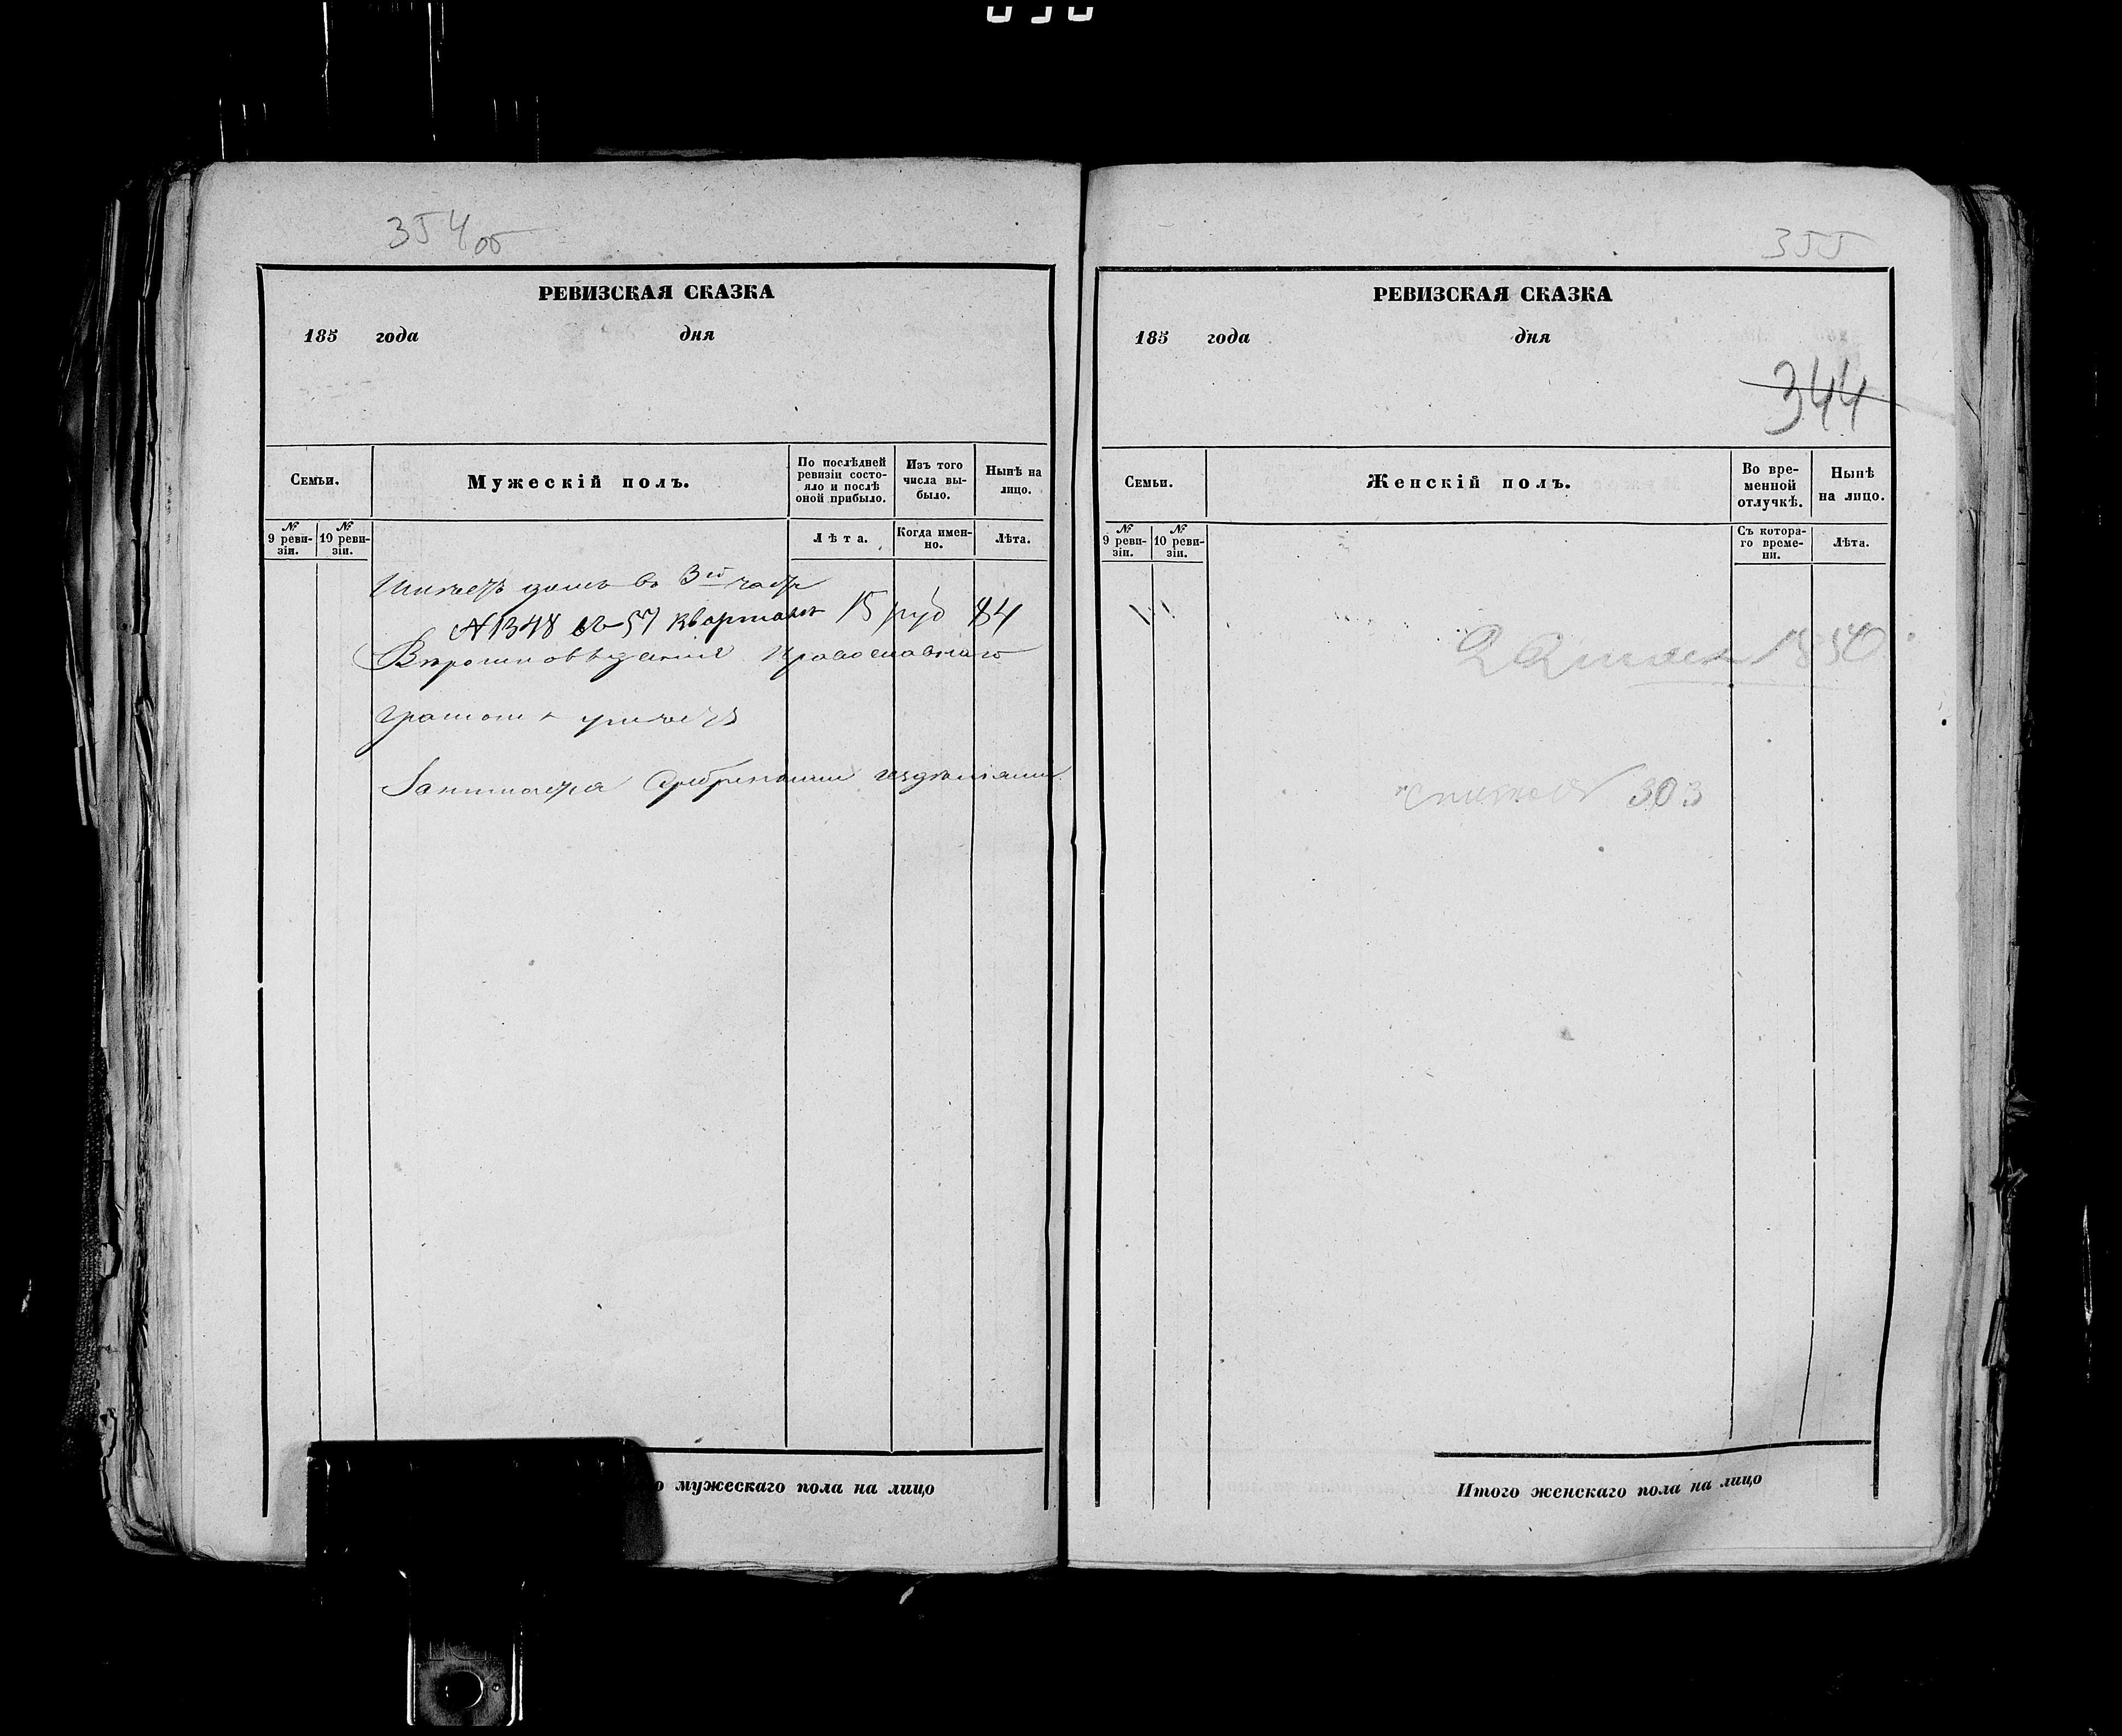 354 об
РЕВИЗСКАЯ СКАЗКА
185 года дня
Семьи.
Мужескій полъ.
По послѣдней ревизіи состояло и послѣ оной прибыло.
Изъ того числа выбыло.
Нынѣ на лицо.
№ 9 ревизіи.
№ 10 ревизіи.
Лѣта.
Когда именно.
Лѣта.
Имѣетъ домъ въ 3й части
№ 1348 въ 57 кварталѣ 15 руб 84
Вѣроисповѣданія Православнаго
грамотѣ умѣетъ
Занимается Серебреными издѣліями
о мужескаго пола на лицо
355
РЕВИЗСКАЯ СКАЗКА
185 года дня
344
Семьи.
Женскій полъ.
Во временной отлучкѣ.
Нынѣ на лицо.
№ 9 ревизіи.
№ 10 ревизіи.
Съ котораго времени.
Лѣта.
1850
303
Итого женскаго пола на лицо